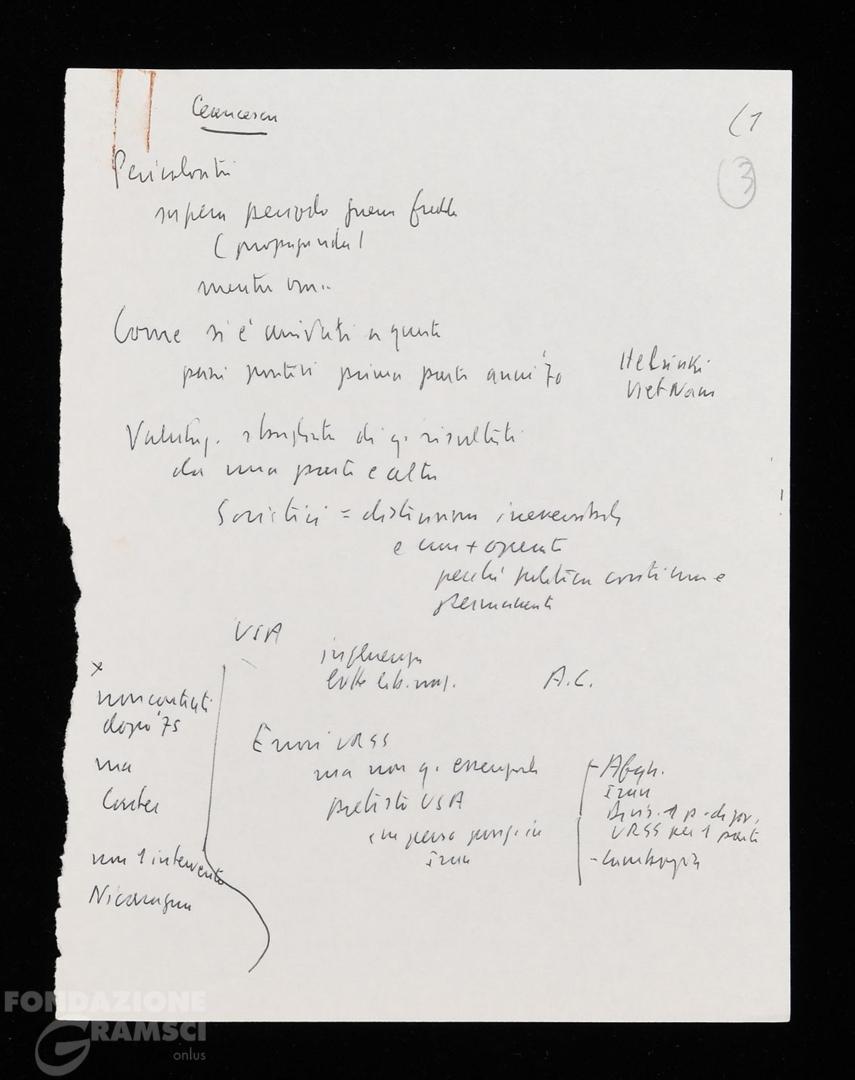 Ceaucescu
(1
3
Pericolosità
supera periodo guerra fredda
(propaganda)
mentre ora..
Come si è arrivati a questo
passi positivi prima parte anni '70
Helsinki
Viet Nam
Valutaz. sbagliata di q. risultati
da una parte e altra
Sovietici = distensione irreversibile
e non + operate
perché politica continua e
permanente
USA
influenza
lotte lib. naz.
A.C.
x
non contenti
dopo '75
ma
Carter
non 1 intervento
Nicaragua
Errori URSS
ma non q. essenziale
pretesto USA
in Iran
- Afgh.
Iran
URSS per 1 parte
- Cambogia
FONDAZIONE
GRAMSCI
onlus